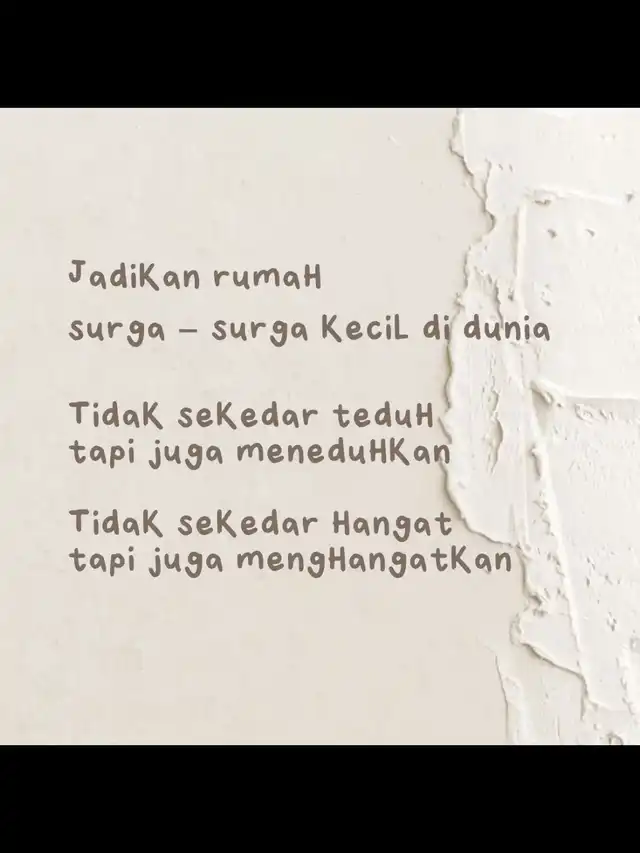 Jadikan rumah
surga – surga kecil di dunia
Tidak sekedar teduh
tapi juga meneduhkan
Tidak sekedar hangat
tapi juga menghangatkan